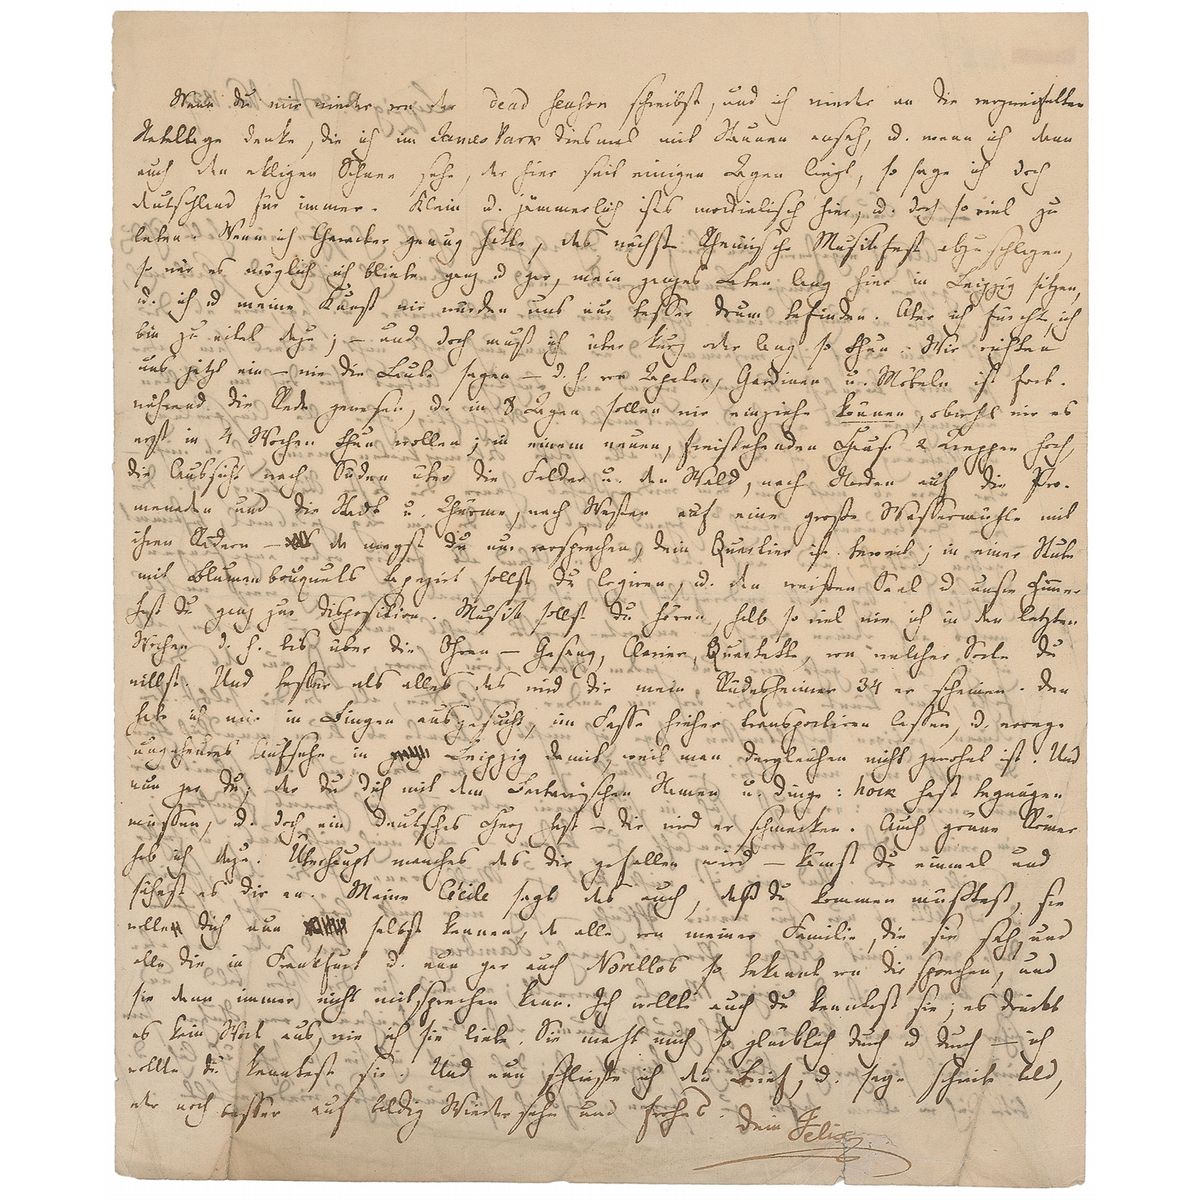 Wenn du mir wieder von der dead season schreibst, und ich wieder an die verzweifelten
denke, die ich im James Park diesmal mit Staunen ansah, u. wenn ich dann
auch den ekligen Schnee sehe, der hier seit einigen Tagen liegt, so sage ich doch
Deutschland für immer. Klein u. jämmerlich ists mordialisch hier, u. doch so viel zu
leben. Wenn ich Character genug hätte, das nächste Rheinische Musikfest abzuschlagen,
so wär es möglich ich bliebe ganz u gar, mein ganzes Leben lang hier in Leipzig sitzen,
u. ich u meine Kunst wir würden uns nur besser drum befinden. Aber ich fürcht, ich
bin zu eitel dazu; – und doch muß ich über kurz oder lang so thun. Wir richten
uns jetzt ein – wie die Leute sagen – d. h. von Tapeten, Gardinen u. Möbeln ist fort-
während die Rede gewesen, u. in 8 Tagen sollen wir einziehe können, obwohl wir es
erst in 4 Wochen thun wollen; in einem neuen, freistehenden Hause 2 Treppen hoch,
die Aussicht nach Süden über die Felder u. den Wald, nach Norden auf die Pro-
menaden und die Stadt u. Thürme, nach Westen auf eine große Wassermühle mit
ihren Rädern – da magst du nur vorsprechen, dein Quartier ist bereit; in einer Stube
mit Blumenbouquets tapezirt sollst du logiren, u. den weißen Saal u. unsre Zimmer
hast du ganz zur Disposition. Musik sollst du hören, halb so viel wie ich in den letzten
Wochen d. h. bis über die Ohren – Gesang, Clavier, Quartette, von welcher Sorte du
willst. Und besser als alles das wird dir mein Rüdesheimer 34 er scheinen. Den
hab ich mir in Bingen ausgesucht, im Fasse hieher transportiren lassen, u. errege
ungeheures Aufsehn in Leipzig damit, weil man dergleichen nicht gewohnt ist. Und
nun gar du, der du dich mit dem Barbarischen Namen u. Dinge: hock hast begnügen
müssen, u. doch ein Deutsches Herz hast – dir wird er schmecken. Auch grüne Römer
hab ich dazu. Überhaupt manches das dir gefallen wird – kämst du einmal und
sähest es dir an. Meine Cécile sagt das auch, daß du kommen müßtest, sie
wolle dich nun selbst kennen, da alle von meiner Familie, die sie sah, und
alle die in Frankfurt u. nun gar auch Novellos so bekannt von dir sprechen, und
sie dann immer nicht mitsprechen kann. Ich wollte auch du kenntest sie; es drückt
es kein Wort aus, wie ich sie liebe. Sie macht mich so glücklich durch u durch – ich
wollte du kenntest sie. Und nun schließe ich den Brief, u. sage schreib bald,
oder noch besser auf baldig Wiedersehn und frohes. Dein Felix